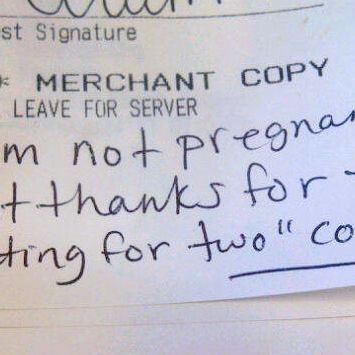 st Signature
MERCHANT COPY
LEAVE FOR SERVER
m not pregna
t thanks for
ting for two" co